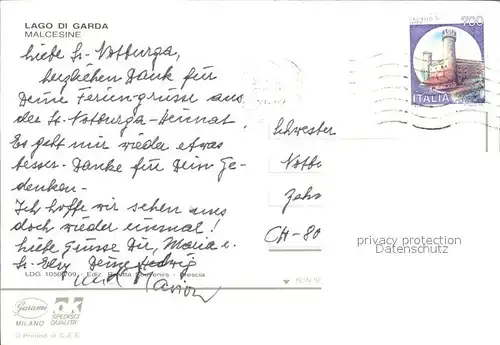 LAGO DI GARDA
MALCESINE
Liebe Sr. Notburga,
herzlichen Dank für
Deine Feriengrüsse aus
der St. Notburga-Heimat!
Es geht mir wieder etwas
besser. Danke für Dein Ge-
denken.
Ich hoffe wir sehen uns
doch wieder einmal!
Liebe Grüsse Dir, Maria u.
Sr. Elsy Deine Hedwig
und
LDG 105 Brescia
Garami
MILANO
SPEDISCI
QUALITA'
Printed in C.E.E.
700
ITALIA
Schwester
Notbu
Zehn
CH-80
privacy protection
Datenschutz